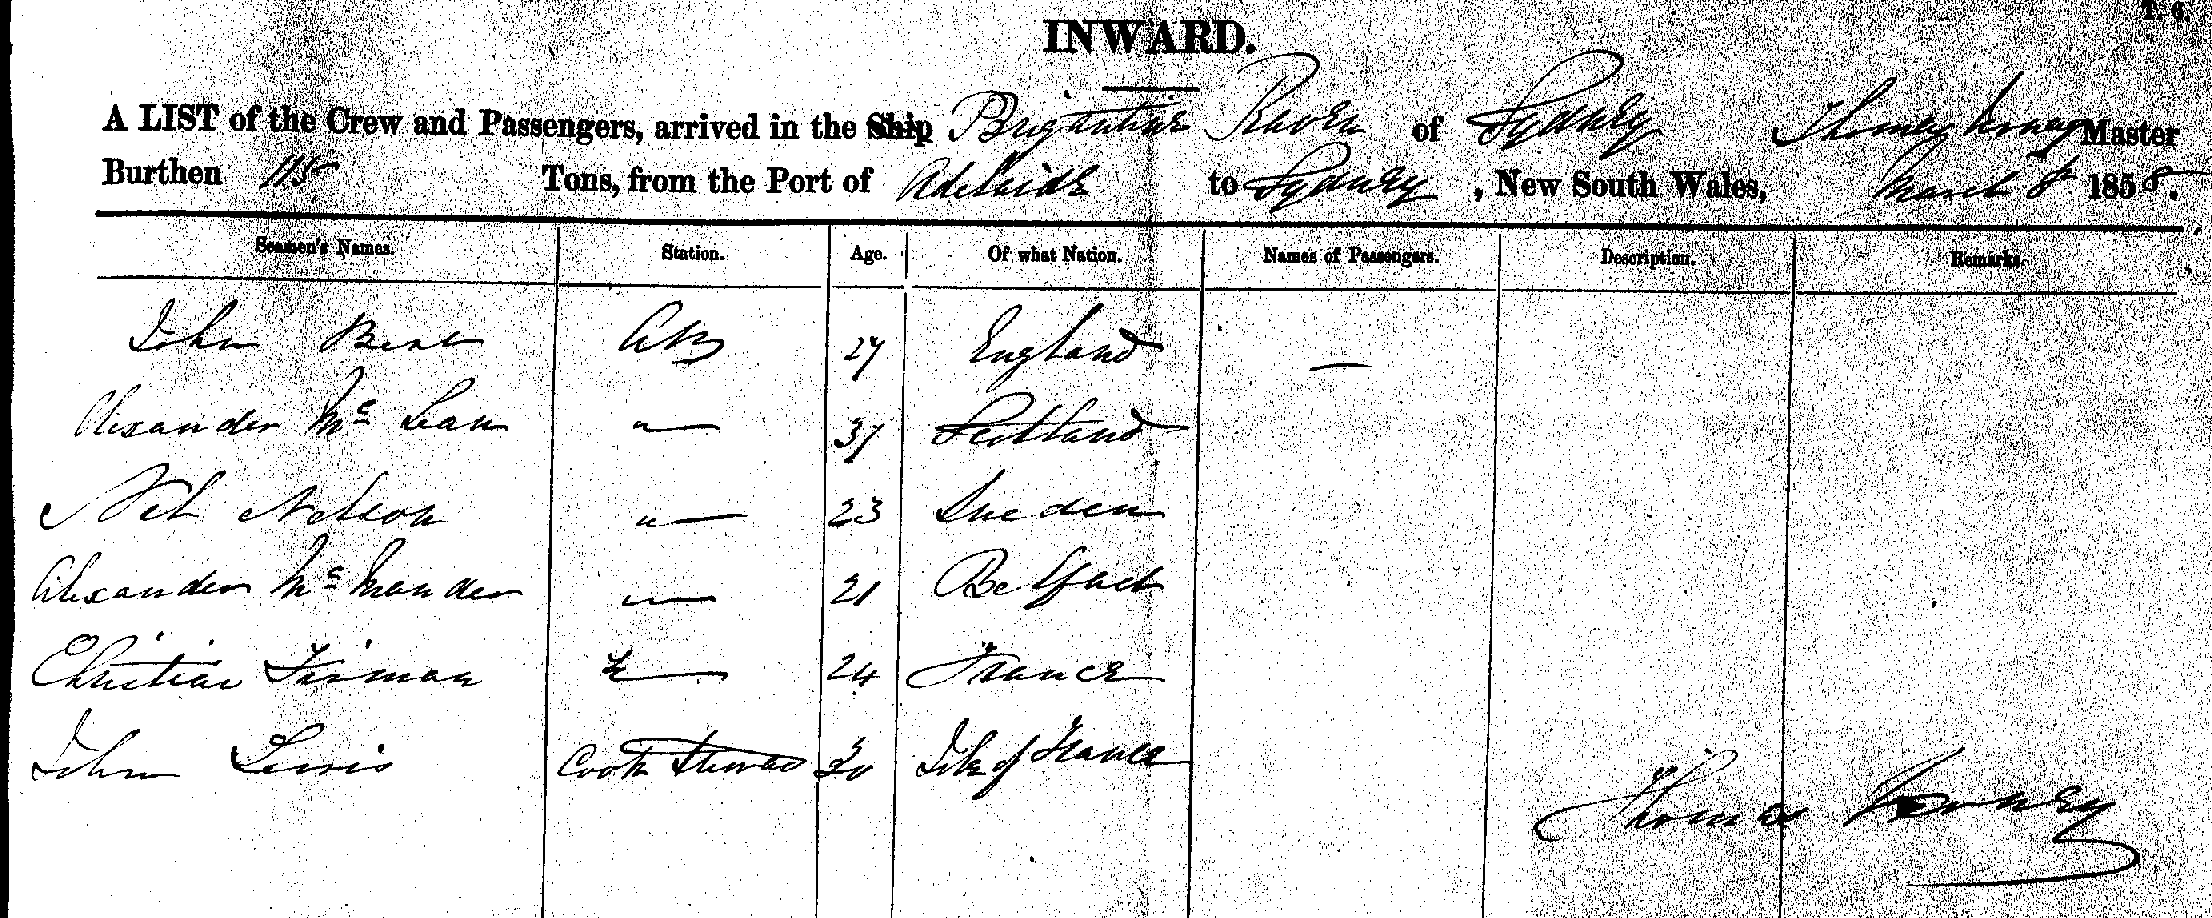 T. 6.
INWARD.
A LIST of the Crew and Passengers, arrived in the Ship Brigantine Raven of Sydney Thomas Master
Burthen 115 Tons, from the Port of Adelaide to Sydney, New South Wales, March 8 1858.
Seamen's Names. Station. Age. Of what Nation. Names of Passengers. Description. Remarks.
John AB 27 England —
Alexander Mc Lean " 37 Scotland
Nelson " 23 Sweden
Alexander Mc " 21 Belfast
Christian 24 France
John Lewis Cook 30 Isle of France
Thomas